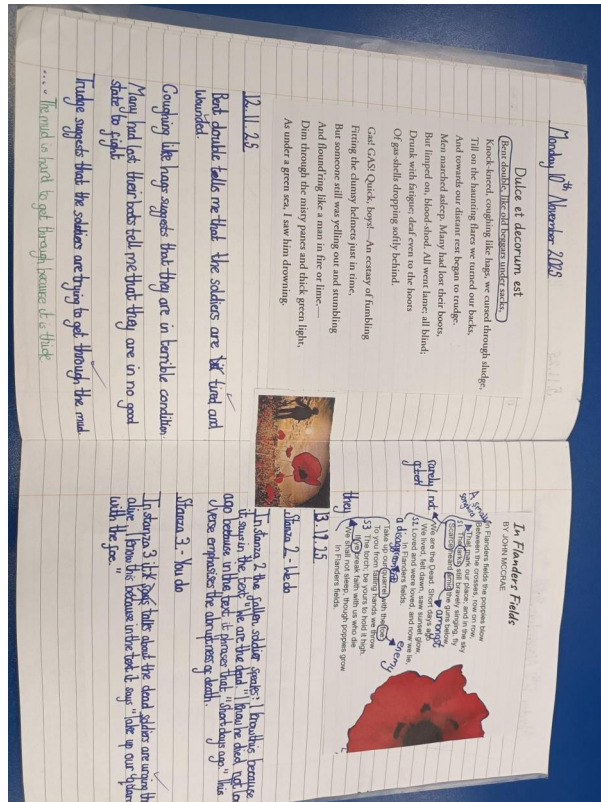 Monday 10th November 2025
Dulce et decorum est
Bent double, like old beggars under sacks,
Knock-kneed, coughing like hags, we cursed through sludge,
Till on the haunting flares we turned our backs,
And towards our distant rest began to trudge.
Men marched asleep. Many had lost their boots,
But limped on, blood-shod. All went lame; all blind;
Drunk with fatigue; deaf even to the hoots
Of gas-shells dropping softly behind.
Gas! GAS! Quick, boys!—An ecstasy of fumbling
Fitting the clumsy helmets just in time,
But someone still was yelling out and stumbling
And flound'ring like a man in fire or lime.—
Dim through the misty panes and thick green light,
As under a green sea, I saw him drowning.
12.11.25
Bent double tells me that the soldiers are tired and
wounded.
Coughing like hags suggests that they are in terrible condition
Many had lost their boots tell me that they are in no good
state to fight
Trudge suggests that the soldiers are trying to get through the mud
.... The mud is hard to get through because it is thick
In Flanders Fields
BY JOHN MCCRAE
In Flanders fields the poppies blow
Between the crosses, row on row,
That mark our place; and in the sky
S1 The larks, still bravely singing, fly
Scarcely heard amid the guns below.
A small
songbird
amongst
rarely / not
often
We are the Dead. Short days ago
We lived, felt dawn, saw sunset glow,
S2 Loved and were loved, and now we lie,
In Flanders fields.
a disagreement
enemy
Take up our quarrel with the foe:
To you from failing hands we throw
S3 The torch; be yours to hold it high.
If ye break faith with us who die
We shall not sleep, though poppies grow
In Flanders fields.
they
13.11.25
Stanza 2 - We do
In stanza 2 the fallen soldier speaks: I know this because
it says in the text "We are the dead" I know he died not lo
ago because in the text it phrases that "Short days ago" This
verse emphasises the abruptness of death.
Stanza 3 - You do
In stanza 3 it talk about the dead soldiers are urging th
alive. I know this because in the text it says "Take up our quarr
with the foe"